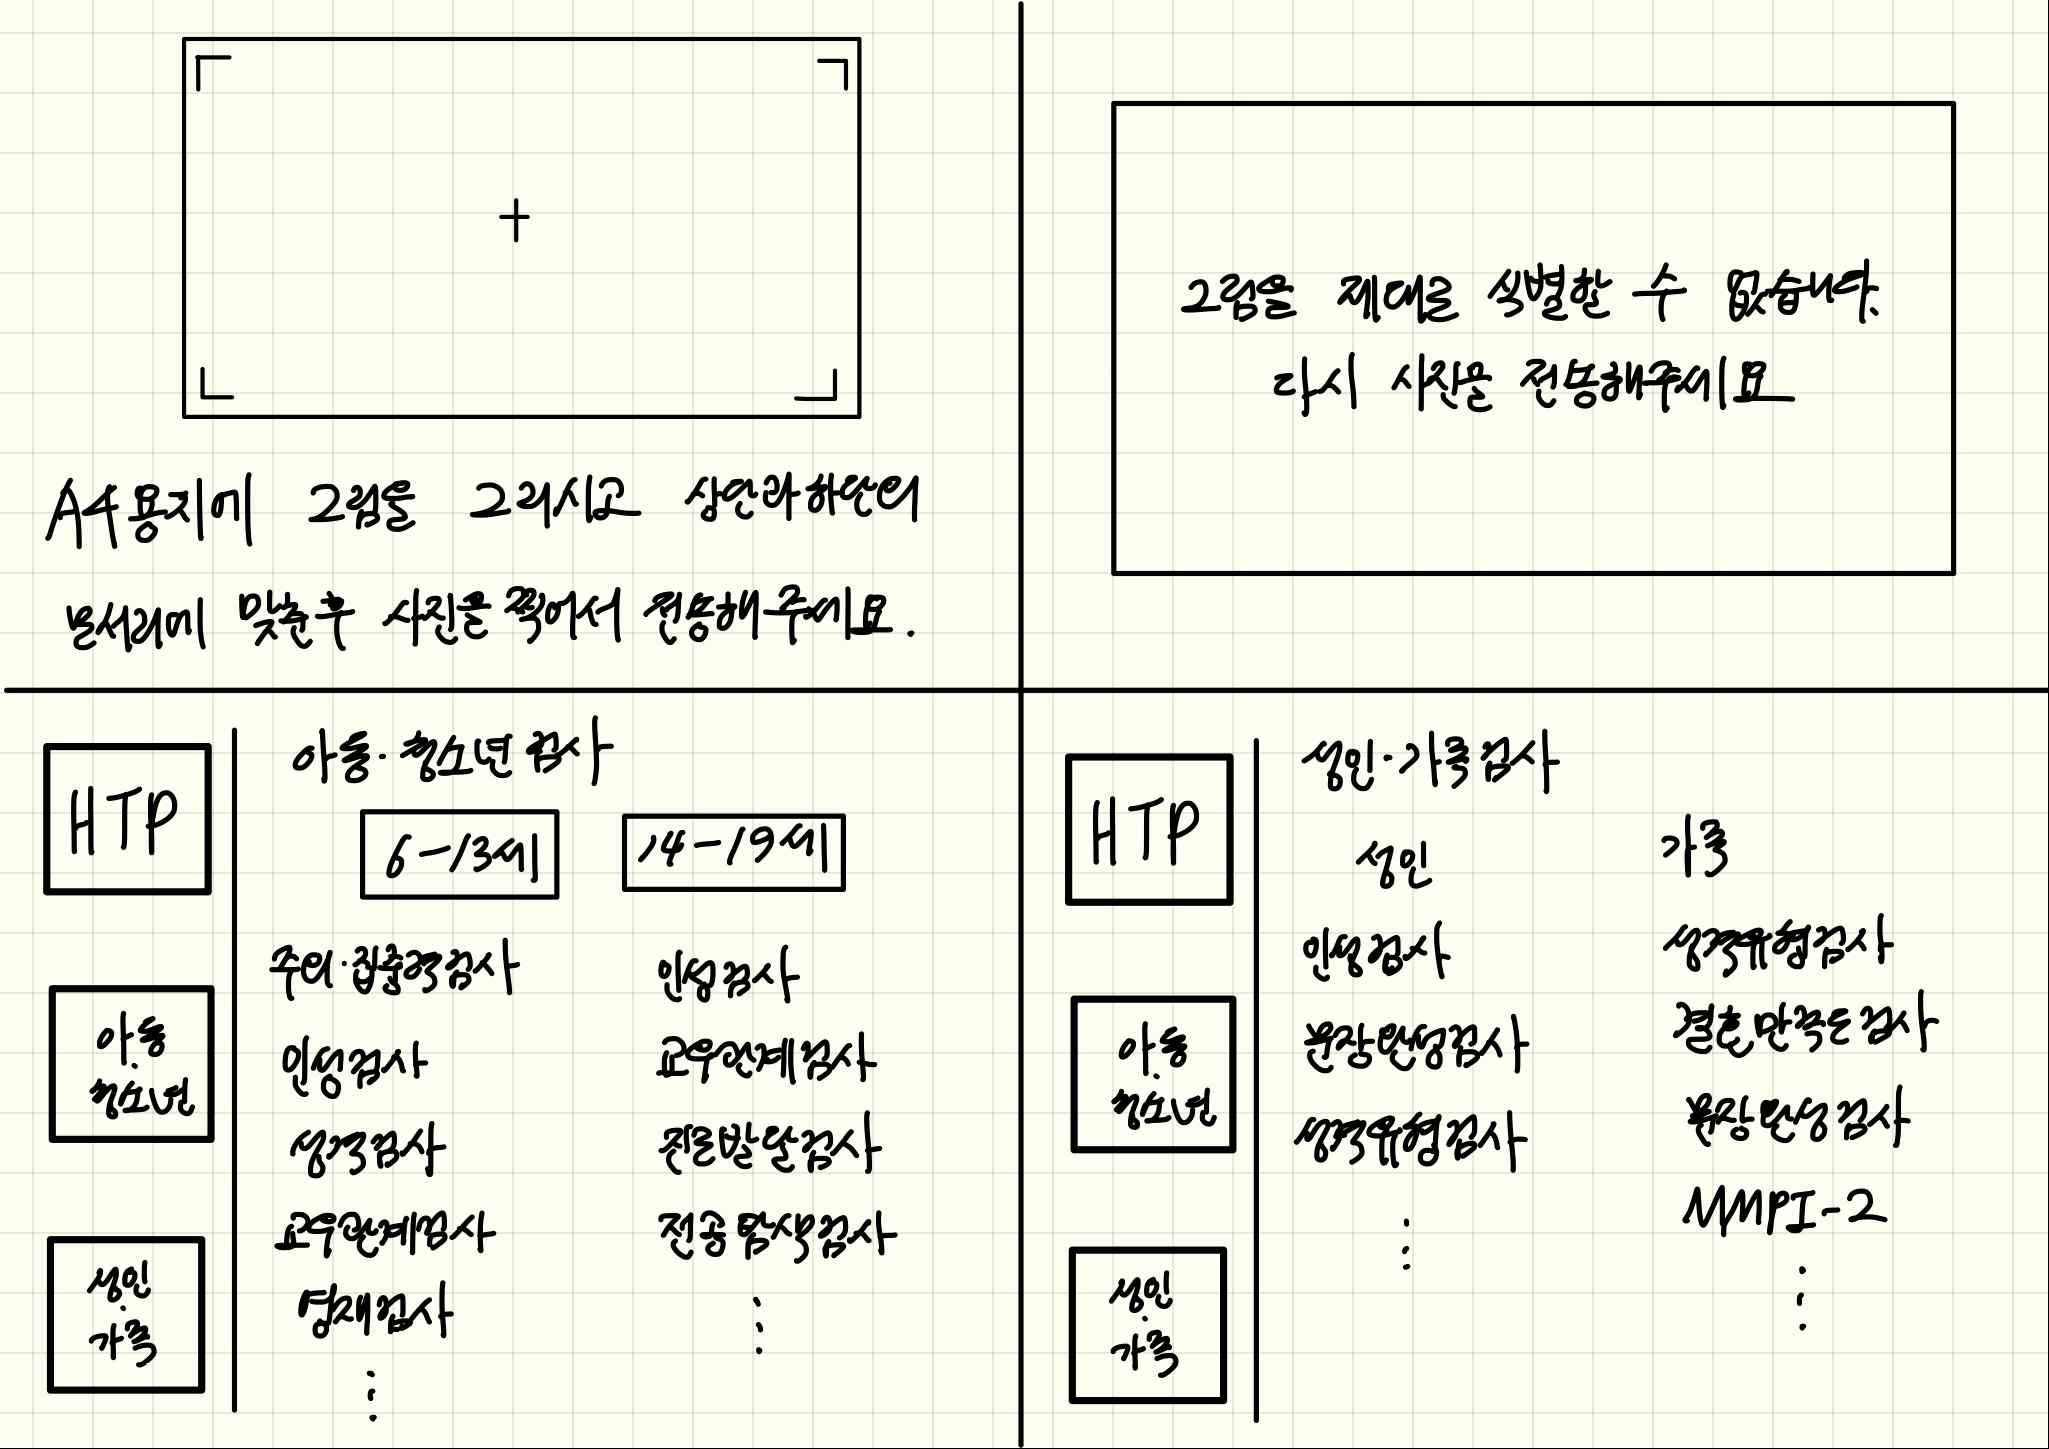 A4용지에 그림을 그리시고 상단과하단의
모서리에 맞춘후 사진을 찍어서 전송해주세요.
그림을 제대로 식별할 수 없습니다.
다시 사진을 전송해주세요
HTP
아동
·
청소년
성인
·
가족
아동·청소년 검사
6-13세
14-19세
주의·집중력검사
인성검사
성격검사
교우관계검사
영재검사
⋮
인성검사
교우관계검사
진로발달검사
전공탐색검사
⋮
HTP
아동
·
청소년
성인
·
가족
성인·가족검사
성인
인성검사
문장완성검사
성격유형검사
⋮
가족
성격유형검사
결혼만족도검사
문장완성검사
MMPI-2
⋮